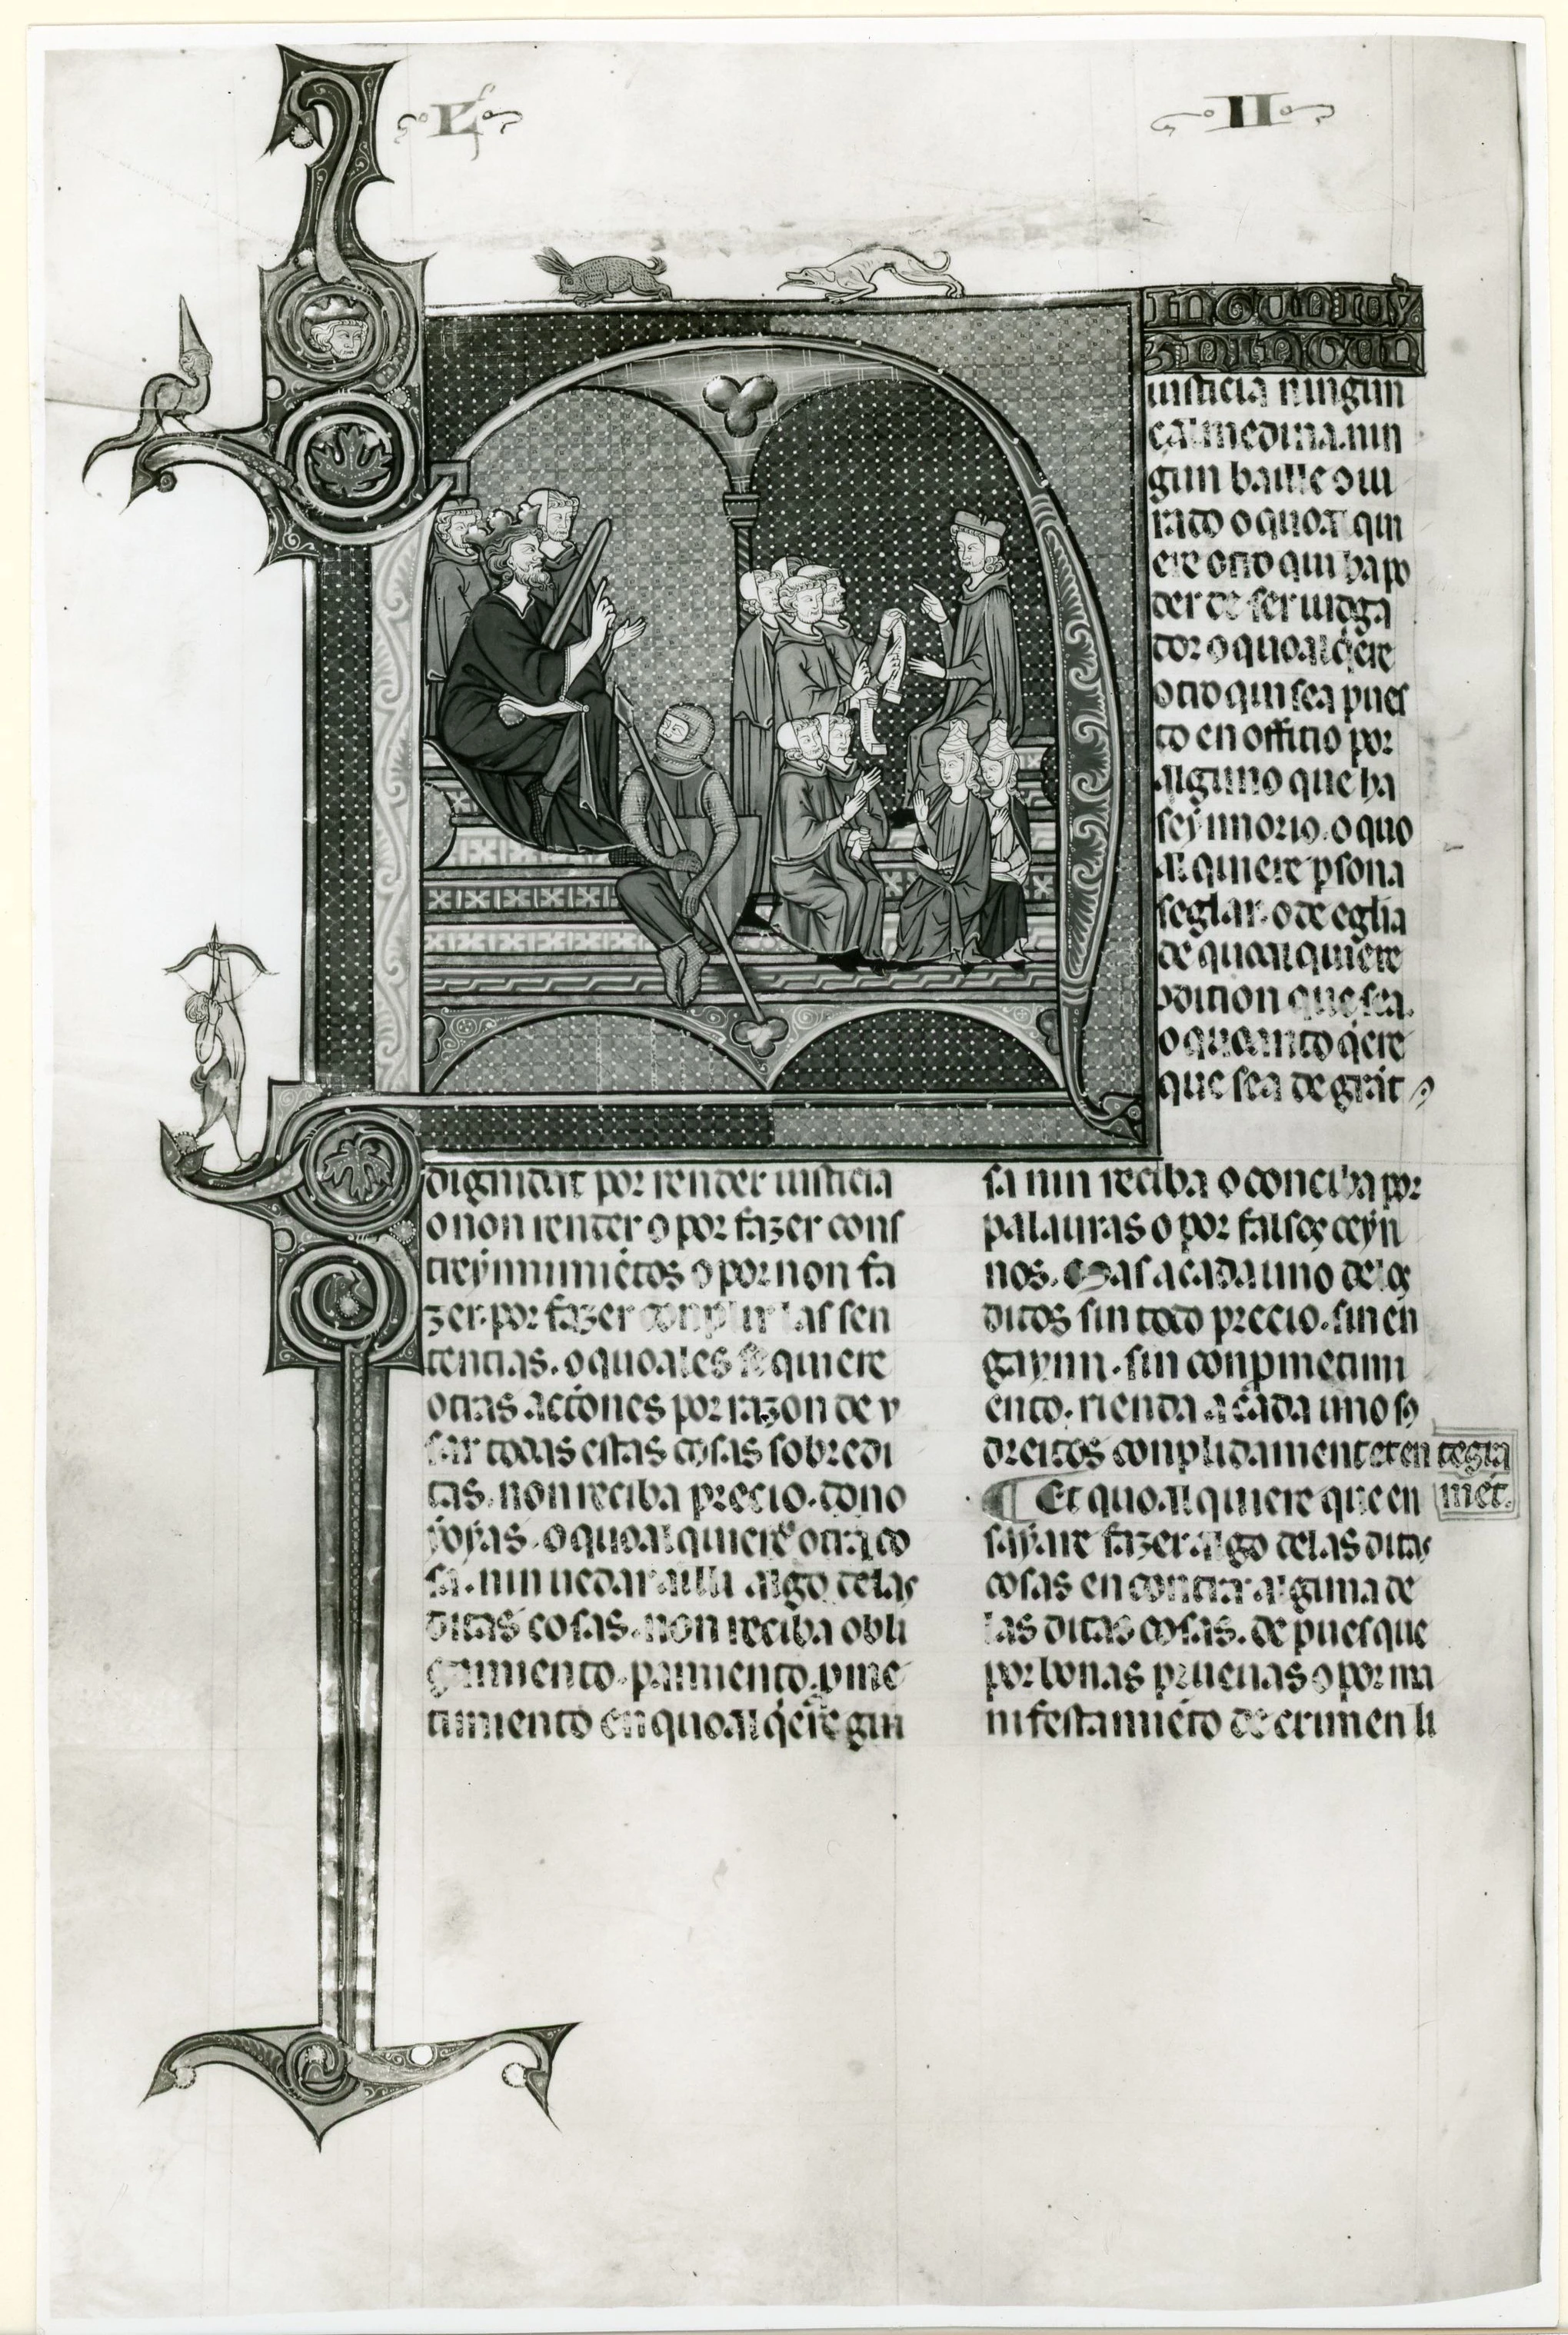 L II
INGUN IUY
Z NINGUN
iusticia ningun
çalmedina. nin
gun baille o iu
rado o quoal qui
ere otro qui ha po
der de ser iudga
dor o quoal qere
otro qui sea pues
to en officio por
alguno que ha
seynnorio. o quo
al quiere psona
seglar. o de eglia
de quoal quiere
9dition que sea.
o quoanto qere
que sea de grant
dignidat por render iusticia
o non render o por fazer cons
treynnimietos o por non fa
zer. por fazer conplir las sen
tencias. o quoales se quiere
otras actiones por razon de v
sar todas estas cosas sobredi
tas. non reciba precio. dono
yoyas. o quoal quiere otra co
sa. nin uedar alli algo delas
ditas cosas. non reciba obli
gamiento. pamiento. pme
timiento en quoal qere gui
sa nin reciba o conciba por
palauras o por falsos ceyn
nos. Mas a cada uno delos
ditos sin todo precio. sin en
gaynn. sin conpmetimi
ento. rienda a cada uno so
dreitos conplidament et en tegra
ment.
¶ Et quoal quiere que en
sayare fazer algo delas ditas
cosas en contra alguna de
las ditas cosas. de pues que
por bonas prueuas o por ma
nifestamieto de crimen li